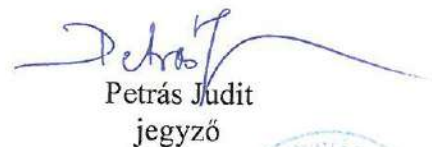 Petrás J
Petrás Judit
jegyző